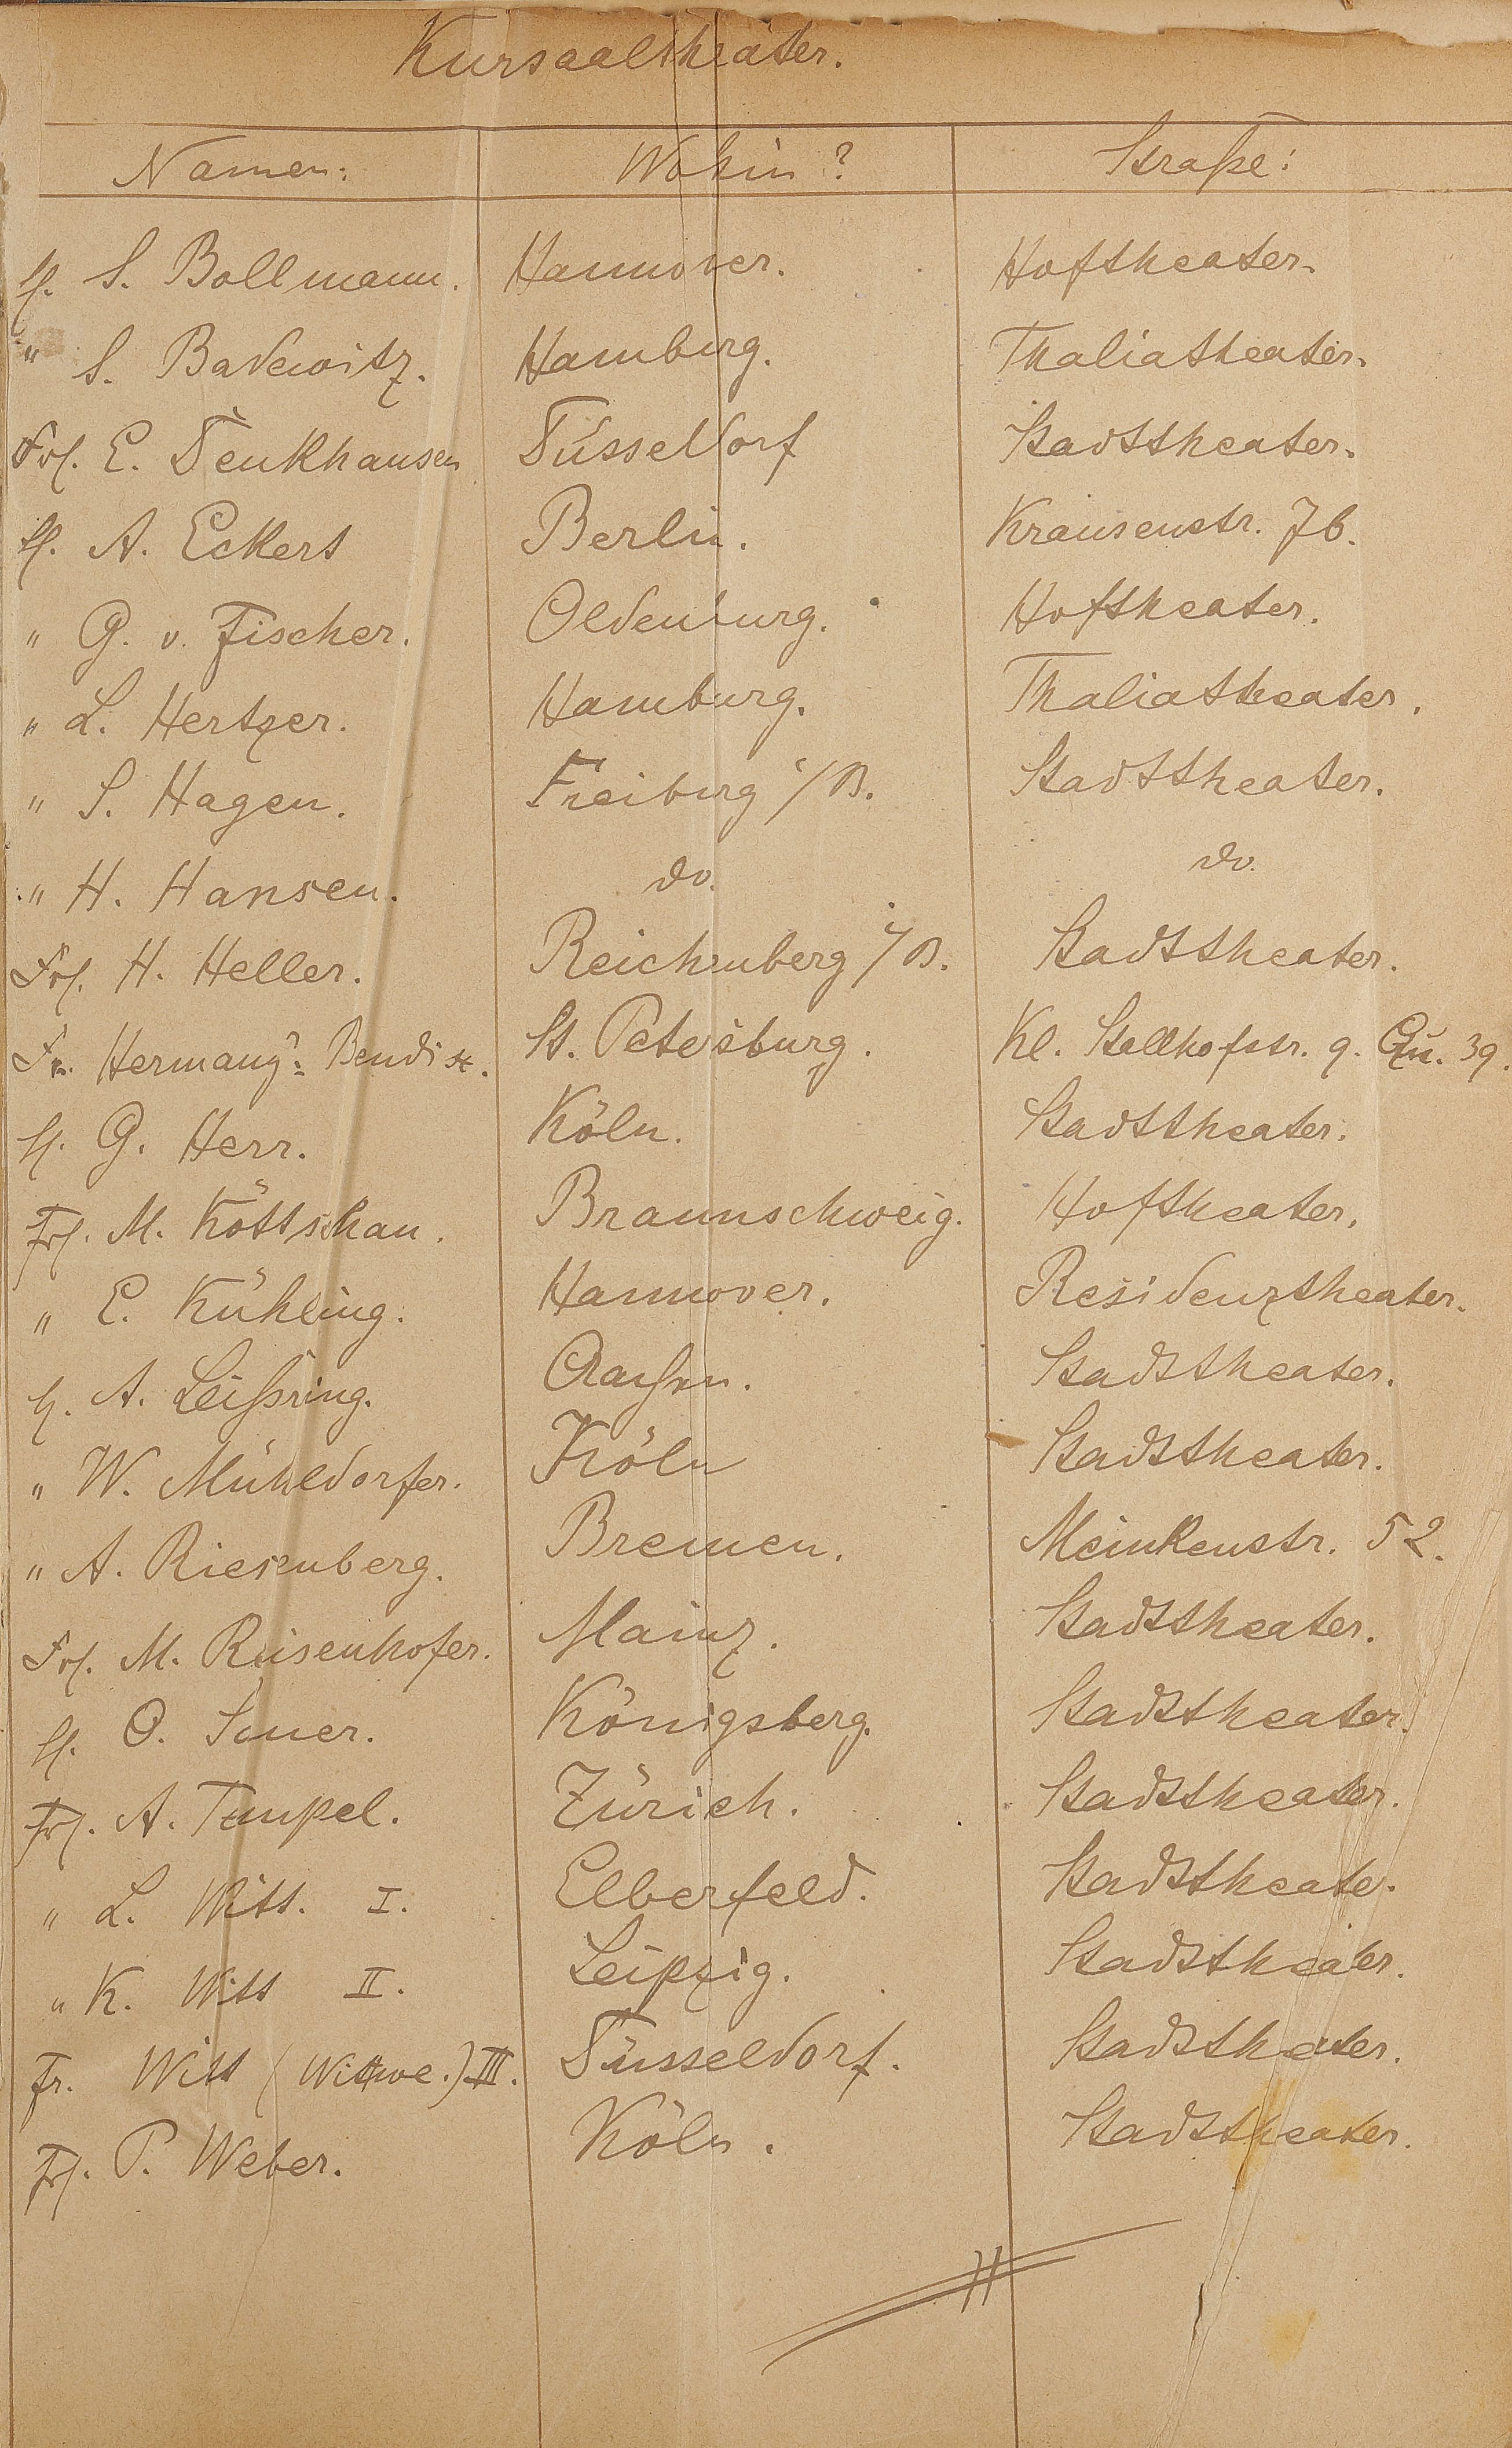 Kursaaltheater.
Namen: Wohin? Straße:
H. S. Bollmann. Hannover. Hoftheater.
" S. Badewitz. Hamburg. Thaliatheater.
Frl. E. Denkhausen Düsseldorf Stadttheater.
H. A. Eckert Berlin. Krausenstr. 76.
" G. v. Fischer. Oldenburg. Hoftheater.
" L. Hertzer. Hamburg. Thaliatheater.
" S. Hagen. Freiburg i/B. Stadttheater.
" H. Hansen. do. do.
Frl. H. Heller. Reichenberg i/B. Stadttheater.
Fr. Hermany-Bendix. St. Petersburg. Kl. Stallhofstr. 9. Qu. 39.
H. G. Herr. Köln. Stadttheater.
Frl. M. Köttschau. Braunschweig. Hoftheater.
" E. Kühling. Hannover. Residenztheater.
H. A. Leißring. Aachen. Stadttheater.
" W. Mühldorfer. Köln Stadttheater.
" A. Riesenberg. Bremen. Meinkenstr. 52.
Frl. M. Reisenhofer. Mainz. Stadttheater.
H. O. Sauer. Königsberg. Stadttheater.
Frl. A. Tempel. Zürich. Stadttheater.
" L. Witt. I. Elberfeld. Stadttheater.
" K. Witt II. Leipzig. Stadttheater.
Fr. Witt (Wittwe.) III. Düsseldorf. Stadttheater.
Frl. P. Weber. Köln. Stadttheater.